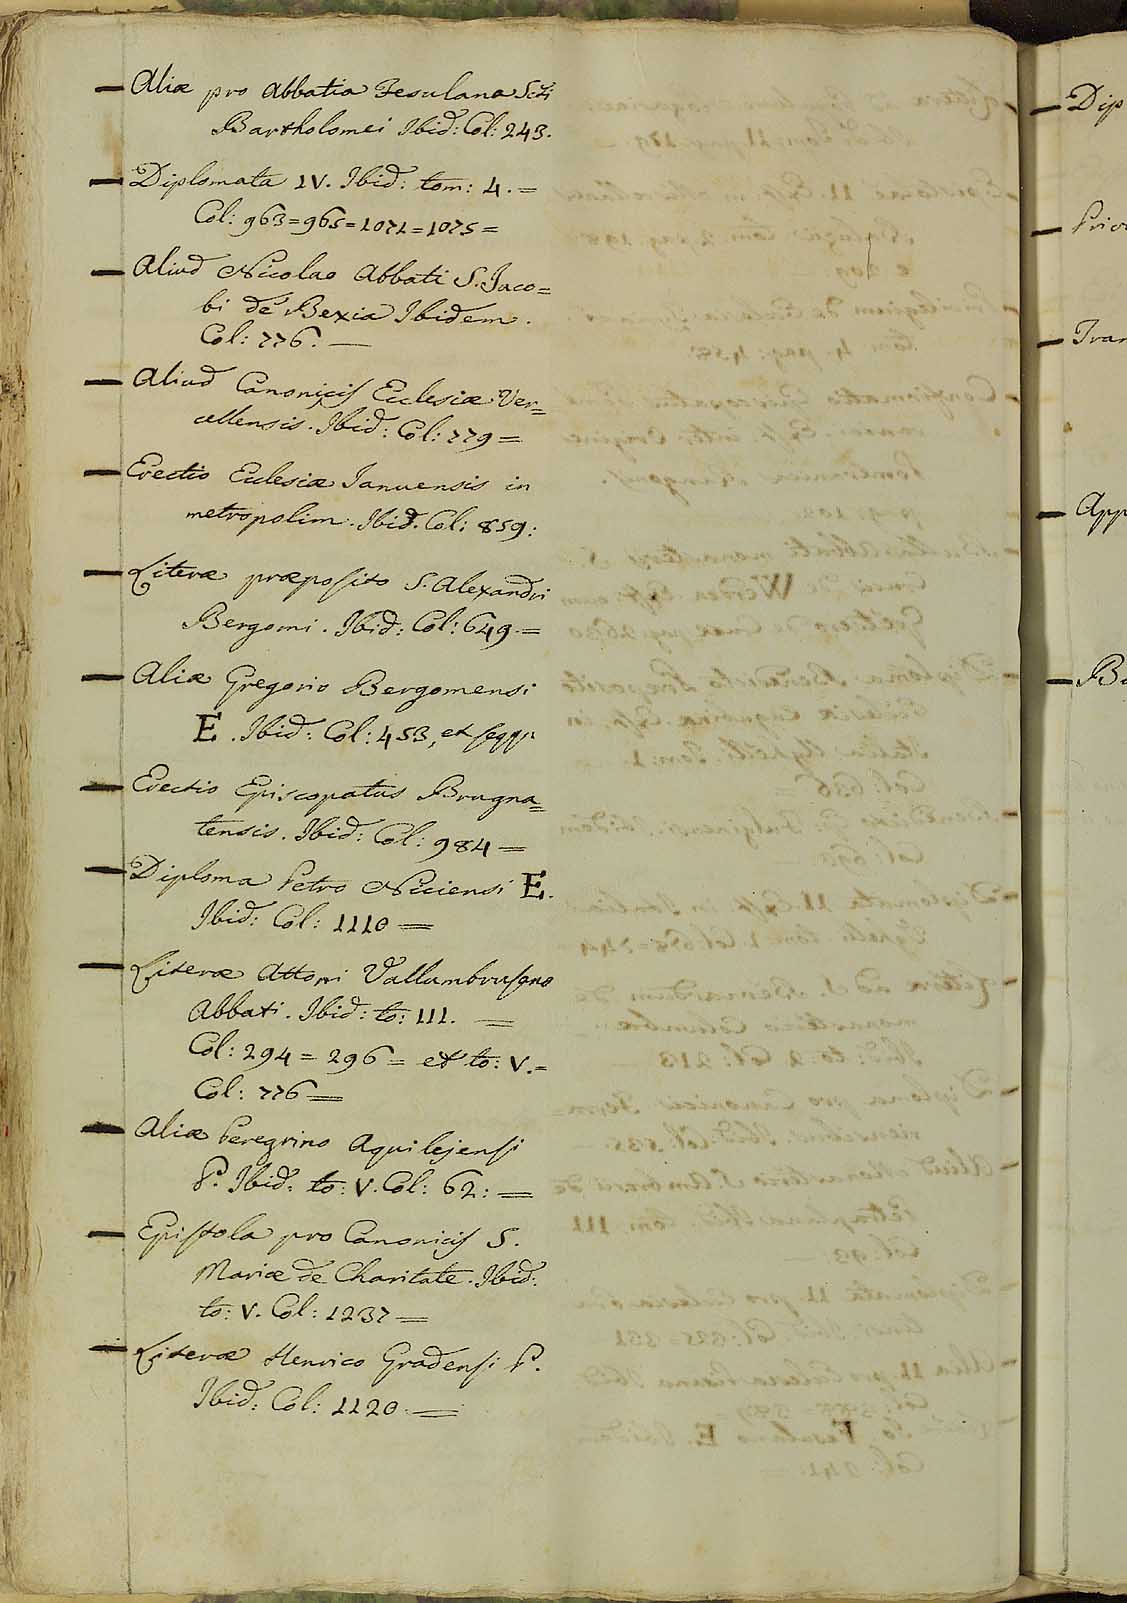 — Aliæ pro Abbatia Fesulana Scti
Bartholomei Ibid: Col: 243.
— Diplomata IV. Ibid: tom: 4. =
Col: 963 = 965 = 1071 = 1075 =
— Aliud Nicolao Abbati S. Jaco=
bi de Bexia Ibidem.
Col: 776. —
— Aliud Canonicis Ecclesiæ Ver=
cellensis. Ibid: Col: 779 =
— Erectio Ecclesiæ Januensis in
metropolim. Ibid. Col: 859:
— Literæ præposito S. Alexandri
Bergomi. Ibid: Col: 649. =
— Aliæ Gregorio Bergomensi
E. Ibid: Col: 453, et seqq:
— Erectio Episcopatus Brugna=
tensis. Ibid: Col: 984 =
— Diploma Petro Niciensi E.
Ibid: Col: 1110 =
— Literæ Attoni Vallumbrusano
Abbati. Ibid: to: III. =
Col: 294 = 296 = et to: V. =
Col: 776 =
— Aliæ Peregrino Aquilejensi
P. Ibid: to: V. Col: 62: =
— Epistola pro Canonicis S.
Mariæ de Charitate. Ibid:
to: V. Col: 1237 =
— Literæ Henrico Gradensi P.
Ibid: Col: 1120. =
— Dip
— Privi
— Tran
— App
— Bu